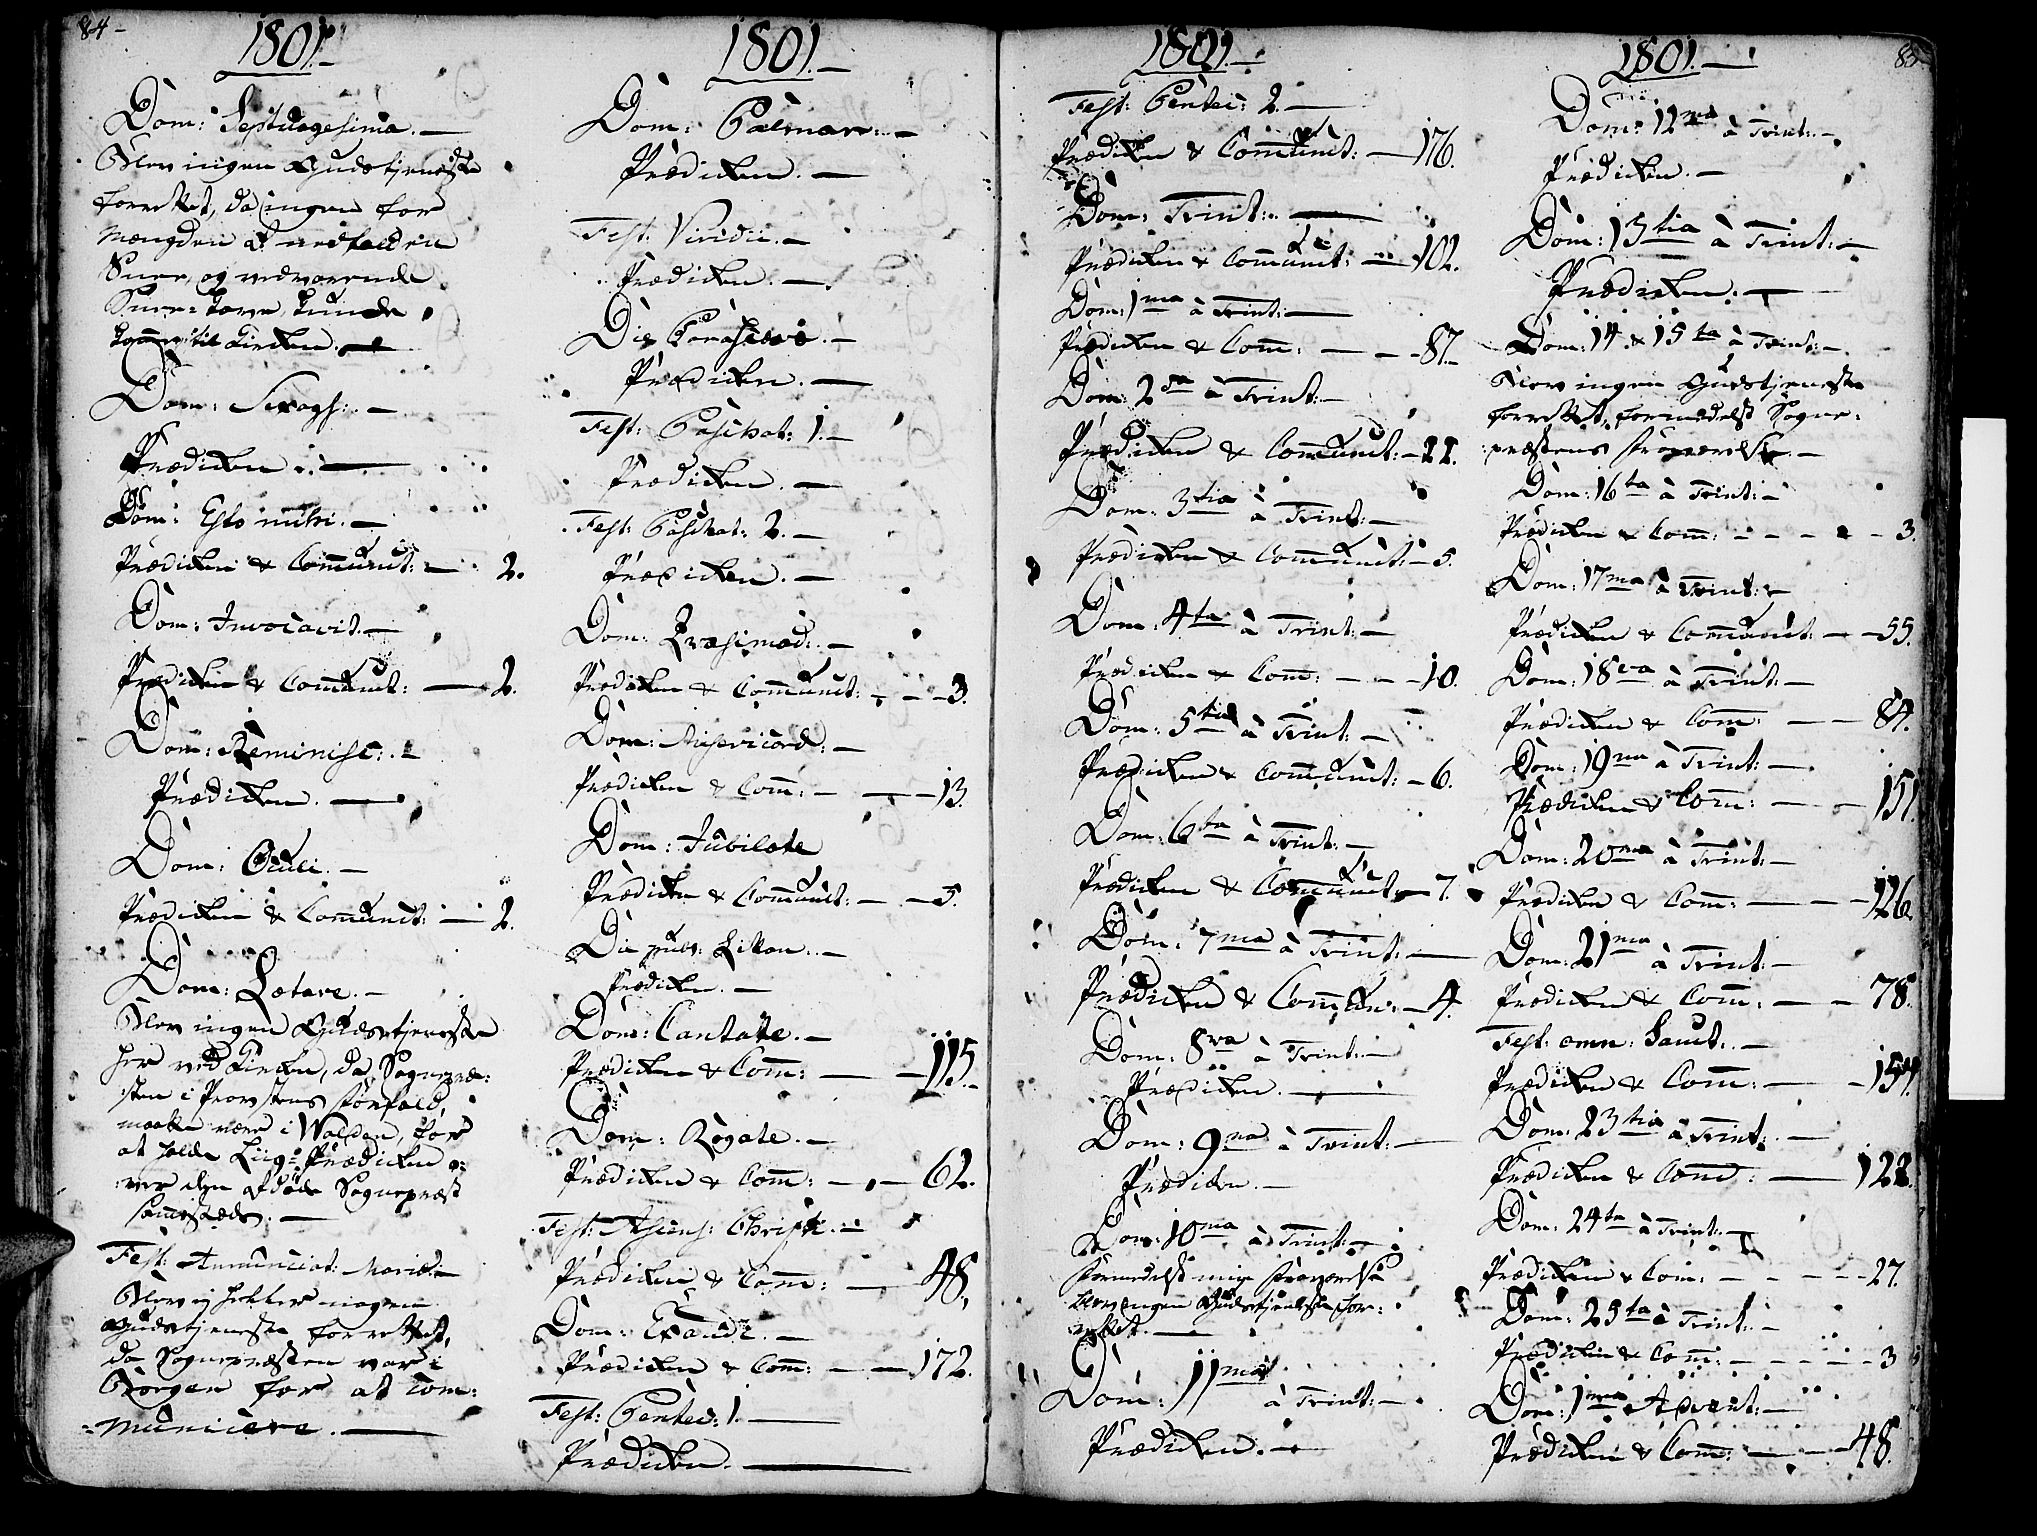 84 -
1801. -
Dom: Septuagesima. -
Blev ingen Gudstjeneste
forrettet, da ingen for
Mængden af nedfalden
Snee, og vedvarende
Snee-Fog, kunde
komme til Kirken. -
Dom: Sexages: -
Prædiken. -
Dom: Esto mihi. -
Prædiken & Communit: - 2.
Dom: Invocavit. -
Prædiken & Communit: - 2.
Dom: Reminisc: -
Prædiken. -
Dom: Oculi. -
Prædiken & Communit: - 2.
Dom: Lætare. -
Blev ingen Gudstjeneste
her ved Kirken, da Sognepræ-
sten i Provstens Forfald,
maatte være i Walden, for
at holde Liig-Prædiken o-
ver den afdøde Sognepræst
sammesteds. -
Fest: Annunciat: Mariæ. -
Blev ej heller nogen
Gudstjeneste forrettet,
da Sognepræsten var i
Borgen for at com-
municere. -
1801. -
Dom: Palmar: -
Prædiken. -
Fest: Viridii. -
Prædiken. -
Die Parasceves. -
Prædiken. -
Fest: Paschat: 1. -
Prædiken. -
Fest: Paschat: 2. -
Prædiken. -
Dom: Qvasimod: -
Prædiken & Communit: - - 3.
Dom: Misericord: -
Prædiken & Comm: - - 13.
Dom: Jubilate
Prædiken & Communit: - - 5.
Die publ: -
Prædiken. -
Dom: Cantate. -
Prædiken & Comm: - - 115. -
Dom: Rogate. -
Prædiken & Comm: - - 62.
Fest: Ascens: Christi. -
Prædiken & Comm: - 48.
Dom: Exaudi. -
Prædiken & Comm: - - 172.
Fest: Pentec: 1. -
Prædiken. -
1801. -
Fest: Pentec: 2. -
Prædiken & Communit: - 176.
Dom: Trint: -
Prædiken & Communit: - 102.
Dom: 1ma à Trint: -
Prædiken & Comm: - - 87. -
Dom: 2da à Trint: -
Prædiken & Communit: - 22.
Dom: 3tia à Trint: -
Prædiken & Communit: - 5.
Dom: 4ta à Trint: -
Prædiken & Comm: - - - 10.
Dom: 5ta à Trint: -
Prædiken & Communit: - 6.
Dom: 6ta à Trint: -
Prædiken & Communit: - 7.
Dom: 7ma à Trint: -
Prædiken & Commun: - 4.
Dom: 8va à Trint: -
Prædiken. -
Dom: 9na à Trint: -
Prædiken. -
Dom: 10ma à Trint: -
Formedelst min Fraværelse
blev ingen Gudstjeneste for-
rettet. -
Dom: 11ma à Trint: -
Prædiken. -
85
1801. -
Dom: 12ma à Trint: -
Prædiken. -
Dom: 13tia à Trint: -
Prædiken. -
Dom: 14 & 15ta à Trint: -
Blev ingen Gudstjeneste
forrettet, formedelst Sogne-
præstens Fraværelse. -
Dom: 16ta à Trint: -
Prædiken & Comm: - - - - 3.
Dom: 17ma à Trint: -
Prædiken & Communit: - - 55.
Dom: 18va à Trint: -
Prædiken & Comm: - - 84.
Dom: 19na à Trint: -
Prædiken & Comm: - - 151.
Dom: 20ma à Trint: -
Prædiken & Comm: - - 126.
Dom: 21ma à Trint: -
Prædiken & Comm: - - 78.
Fest: omn: Sanct: -
Prædiken & Comm: - - 154.
Dom: 23tia à Trint: -
Prædiken & Comm: - 128.
Dom: 24ta à Trint: -
Prædiken & Com: - - - - 27.
Dom: 25ta à Trint: -
Prædiken & Com: - - - - 3
Dom: 1ma Advent: -
Prædiken & Com: - - 48.